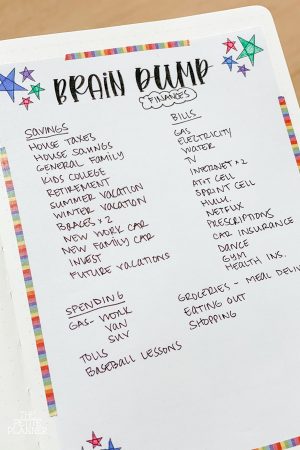 BRAIN DUMP
FINANCES
SAVINGS
HOUSE TAXES
HOUSE SAVINGS
GENERAL FAMILY
KIDS COLLEGE
RETIREMENT
SUMMER VACATION
WINTER VACATION
BRACES x 2
NEW WORK CAR
NEW FAMILY CAR
INVEST
FUTURE VACATIONS
BILLS
GAS
ELECTRICITY
WATER
TV
INTERNET x 2
AT&T CELL
SPRINT CELL
HULU
NETFLIX
PRESCRIPTIONS
CAR INSURANCE
DANCE
GYM
HEALTH INS.
SPENDING
GAS - WORK
VAN
SUV
TOLLS
BASEBALL LESSONS
GROCERIES - MEAL DELIV
EATING OUT
SHOPPING
THE PETITE PLANNER